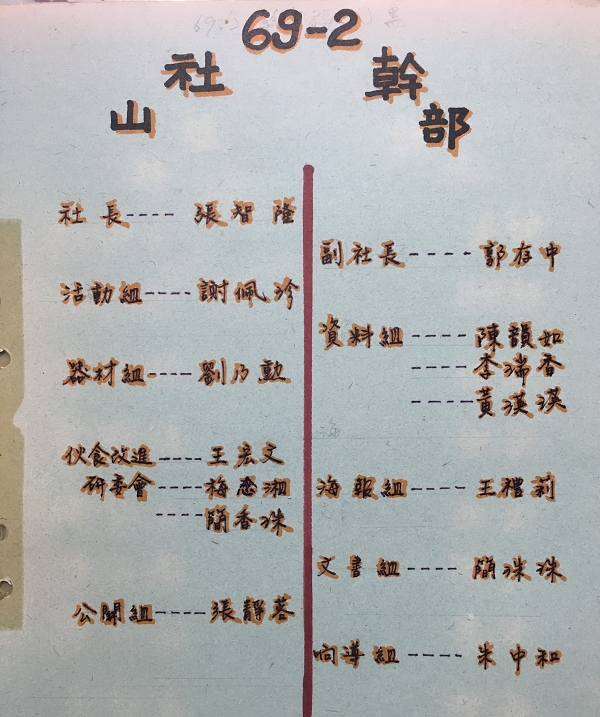 69-2
山社幹部
社長---- 張智隆
活動組---- 謝佩珍
器材組---- 劉乃勲
伙食改進---- 王宏文
研委會---- 梅懋湘
---- 簡香珠
公關組---- 張靜蓉
副社長---- 郭存中
資料組---- 陳韻如
---- 李瑞香
---- 黃漢漢
海報組---- 王禮莉
文書組---- 簡珠珠
响導組---- 米中和